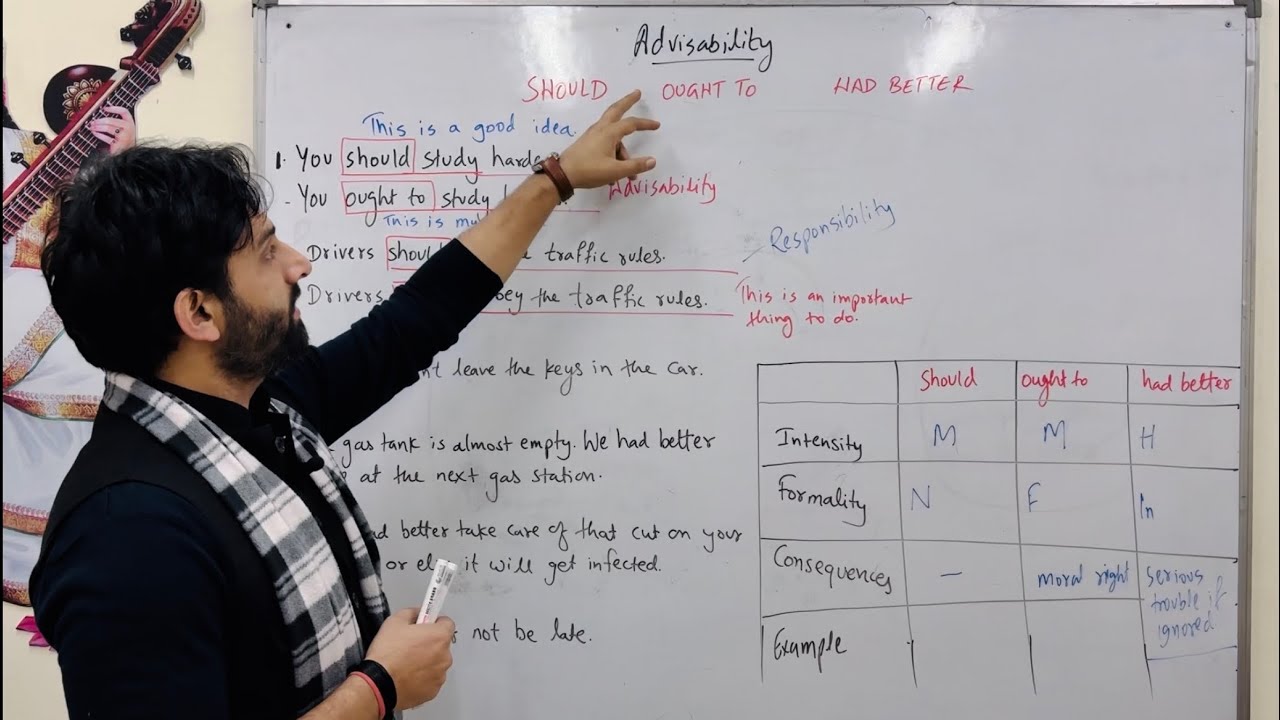 Advisability
SHOULD OUGHT TO HAD BETTER
This is a good idea.
1. You should study harde
- You ought to study
Advisability
This is mu
Responsibility
Drivers shoul the traffic rules.
Drivers ey the traffic rules.
This is an important
thing to do.
nt leave the keys in the car.
gas tank is almost empty. We had better
at the next gas station.
ad better take care of that cut on your
or el it will get infected.
not be late.
Should ought to had better
Intensity M M H
Formality N F In
Consequences – moral right serious
trouble if
ignored
Example